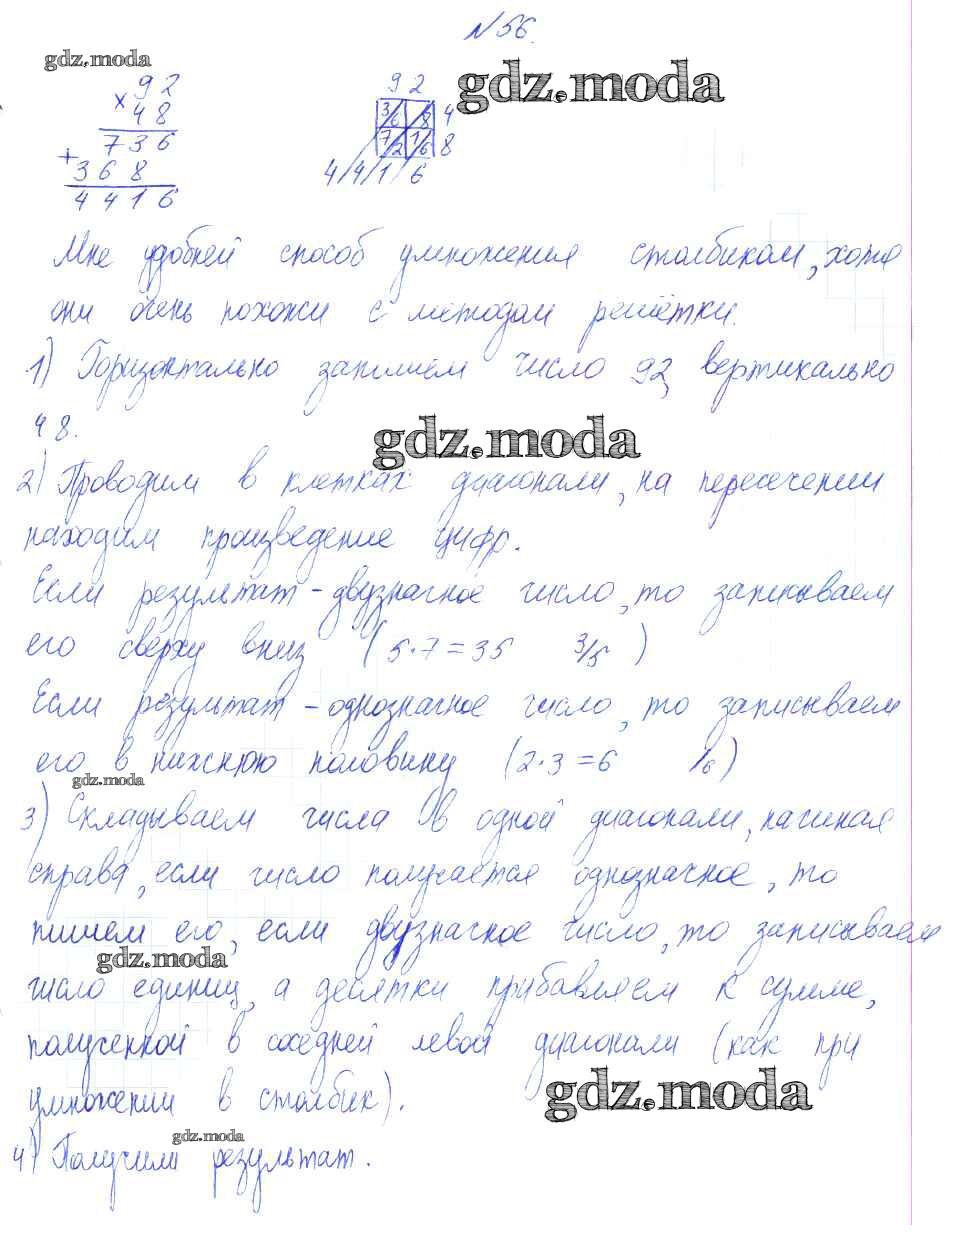 № 56.
gdz.moda
gdz.moda
92
× 48
736
+ 368
4416
92
3/6 /8 4
7/2 1/6 8
4/4/1/6
Мне удобней способ умножения столбиком, хотя
они очень похожи с методом решётки.
1) Горизонтально запишем число 92, вертикально
48.
gdz.moda
2) Проводим в клетках диагонали, на пересечении
находим произведение цифр.
Если результат - двузначное число, то записываем
его сверху вниз (5·7=35 3/5)
Если результат - однозначное число, то записываем
его в нижнюю половину (2·3=6 /6)
gdz.moda
3) Складываем числа в одной диагонали, начиная
справа, если число получается однозначное, то
пишем его, если двузначное число, то записываем
gdz.moda
число единиц, а десятки прибавляем к сумме,
полученной в соседней левой диагонали (как при
умножении в столбик).
gdz.moda
gdz.moda
4) Получили результат.